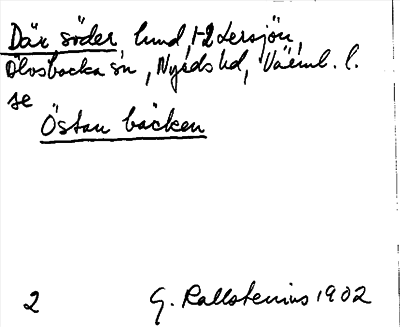 Där söder, hmd, 1-2 Lersjön,
Ölvsbacka sn, Nyeds hd, Värml. l.
se
Östan bäcken
2 G. Kallstenius 1902